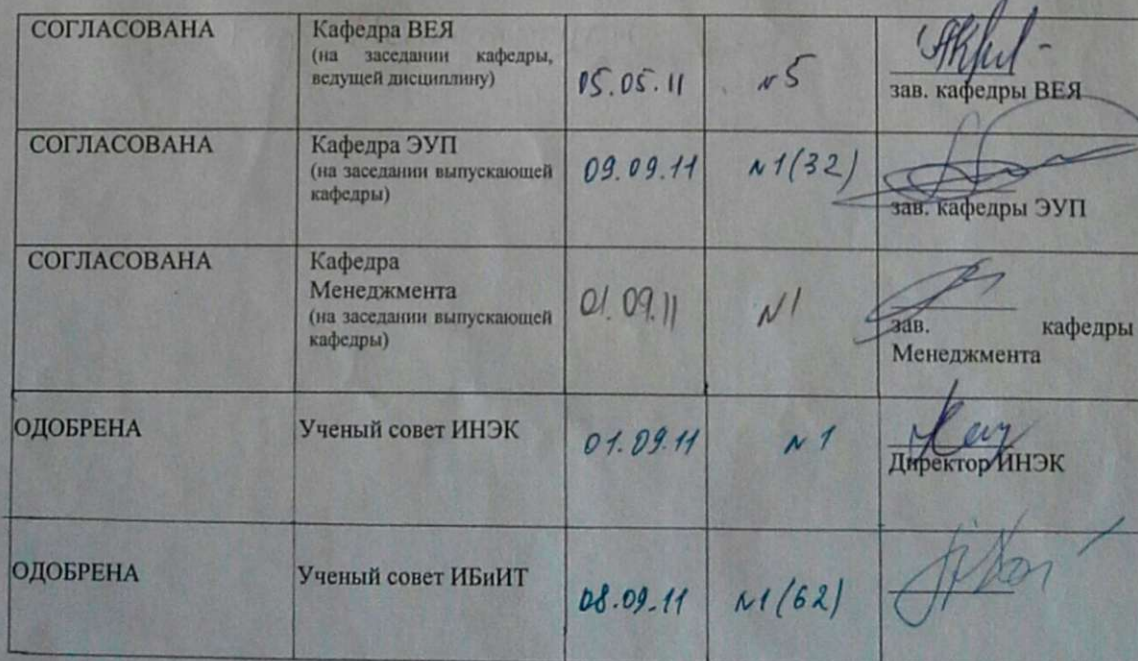 СОГЛАСОВАНА
Кафедра ВЕЯ
(на заседании кафедры,
ведущей дисциплину)
05.05.11
№5
зав. кафедры ВЕЯ
СОГЛАСОВАНА
Кафедра ЭУП
(на заседании выпускающей
кафедры)
09.09.11
№1(32)
зав. кафедры ЭУП
СОГЛАСОВАНА
Кафедра
Менеджмента
(на заседании выпускающей
кафедры)
01.09.11
№1
зав. кафедры
Менеджмента
ОДОБРЕНА
Ученый совет ИНЭК
01.09.11
№1
Директор ИНЭК
ОДОБРЕНА
Ученый совет ИБиИТ
08.09.11
№1(62)